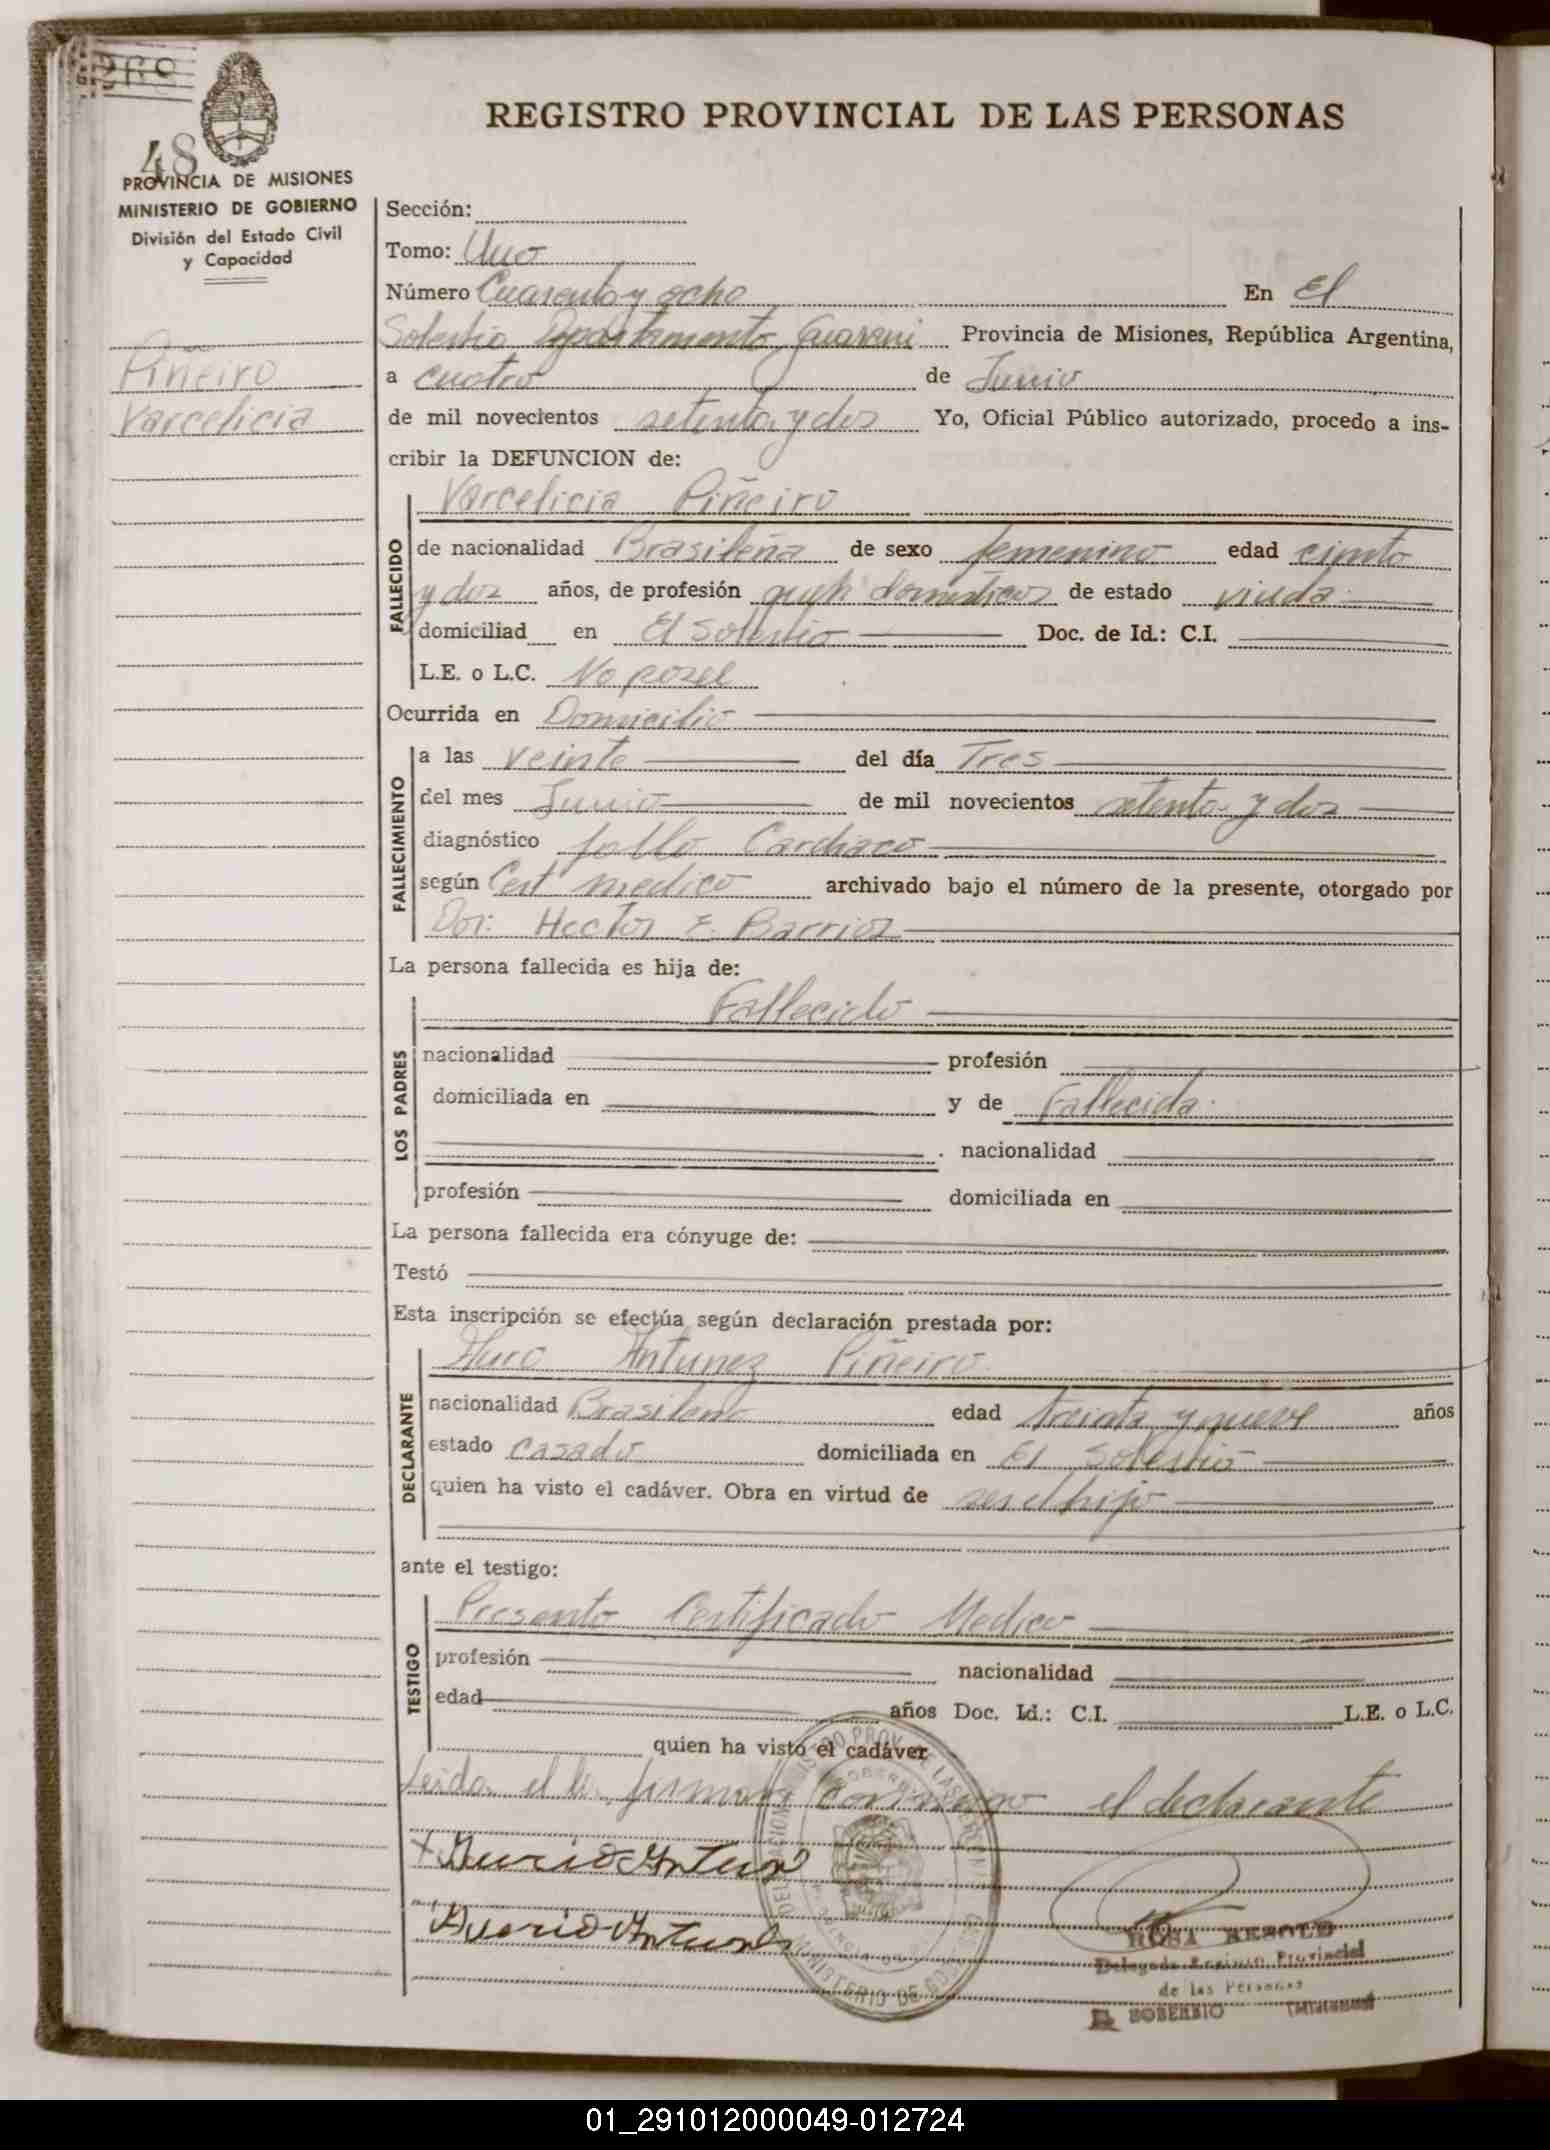 268
48
PROVINCIA DE MISIONES
MINISTERIO DE GOBIERNO
División del Estado Civil
y Capacidad
Piñeiro
Varcelicia
REGISTRO PROVINCIAL DE LAS PERSONAS
Sección:
Tomo: Uno
Número Cuarenta y ocho En El
Soberbio Departamento Guarani Provincia de Misiones, República Argentina,
a cuatro de Junio
de mil novecientos setenta y dos Yo, Oficial Público autorizado, procedo a ins-
cribir la DEFUNCION de:
Varcelicia Piñeiro
FALLECIDO
de nacionalidad Brasileña de sexo femenino edad ciento
y dos años, de profesión domesticos de estado viuda
domiciliad en El Soberbio Doc. de Id.: C.I.
L.E. o L.C. No posee
Ocurrida en Domicilio
FALLECIMIENTO
a las veinte del día Tres
del mes Junio de mil novecientos setenta y dos
diagnóstico fallo Cardiaco
según Cert medico archivado bajo el número de la presente, otorgado por
Dor: Hector E. Barrios
La persona fallecida es hija de:
LOS PADRES
Fallecido
nacionalidad profesión
domiciliada en y de Fallecida
nacionalidad
profesión domiciliada en
La persona fallecida era cónyuge de:
Testó
Esta inscripción se efectúa según declaración prestada por:
DECLARANTE
Antunez Piñeiro
nacionalidad Brasileno edad treinta y nueve años
estado casado domiciliada en El Soberbio
quien ha visto el cadáver. Obra en virtud de ser el hijo
ante el testigo:
TESTIGO
Presento Certificado Medico
profesión nacionalidad
edad años Doc. Id.: C.I. L.E. o L.C.
quien ha visto el cadáver
Leida el firman conmigo el declarante
ROSA
Delegada Registro Provincial
de las Personas
EL SOBERBIO (MISIONES)
01_291012000049-012724